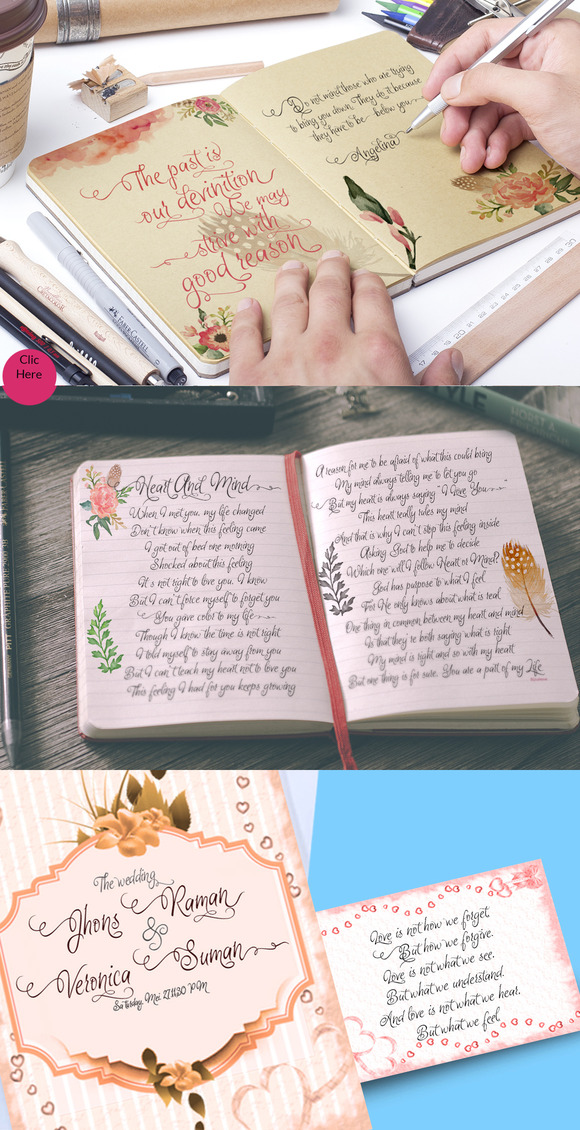 The past is
our devinition
We may
strive with
good reason
Do not mind those who are trying
to bring you down. They do it because
they have to be below you
Angelina
FABER-CASTELL
Clic
Here
Heart And Mind
When I met you, my life changed
Don't know when this feeling came
I got out of bed one morning
Shocked about this feeling
It's not right to love you, I know
But I can't force myself to forget you
You gave color to my life
Though I know the time is not right
I told myself to stay away from you
But I can't teach my heart not to love you
This feeling I had for you keeps growing
A reason for me to be afraid of what this could bring
My mind always telling me to let you go
But my heart is always saying "I Love You"
This heart really rules my mind
And that is why I can't stop this feeling inside
Asking God to help me to decide
Which one will I follow Heart or Mind?
God has purpose to what I feel
For He only knows about what is real
One thing in common between my heart and mind
Is that they're both saying what is right
My mind is right and so with my heart
But one thing is for sure. You are a part of my Life
The wedding
Jhons Raman
&
Veronica Suman
Love is not how we forget
But how we forgive.
Love is not what we see,
But what we understand.
And love is not what we hear,
But what we feel